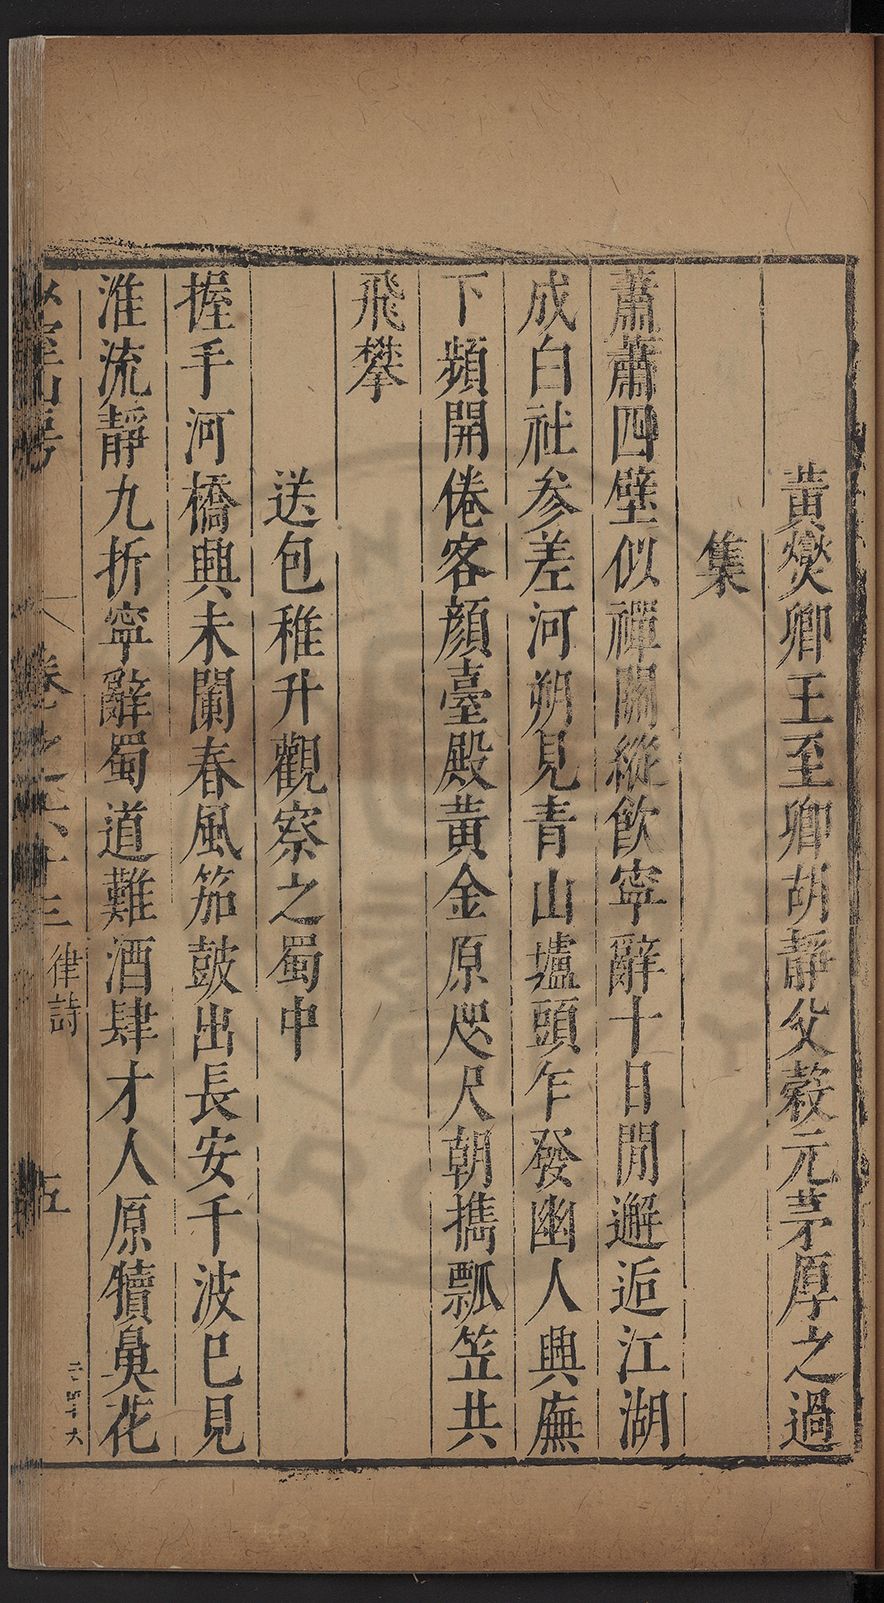 黃爕卿王至卿胡靜父穀元茅厚之過
集
蕭蕭四壁似禪關縱飲寧辭十日閒邂逅江湖
成白社參差河朔見青山壚頭乍發幽人興廡
下頻開倦客顏臺殿黃金原咫尺朝攜瓢笠共
飛攀
送包稚升觀察之蜀中
握手河橋興未闌春風笳鼓出長安千波巴見
淮流靜九折寧辭蜀道難酒肆才人原犢鼻花
律詩
五